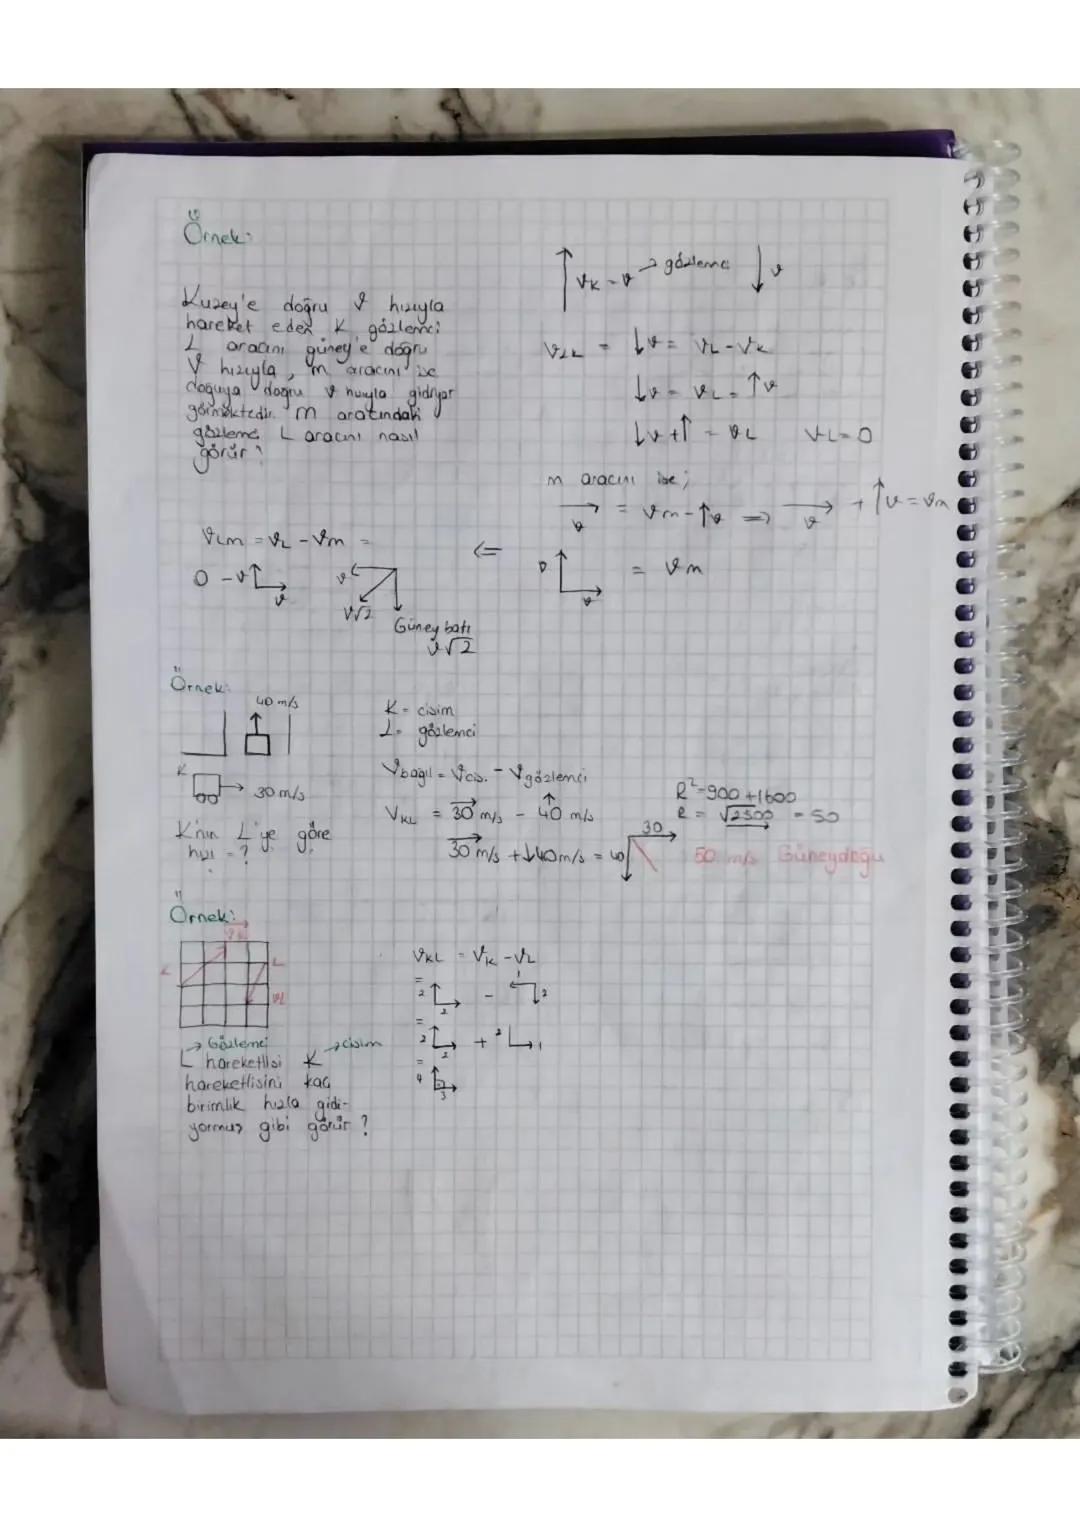 Örnek:
Kuzey'e doğru v hızıyla
hareket eden K gözlemci
L aracını güney'e doğru
v hızıyla, m aracını ise
doğuya doğru v hızıyla gidiyor
görmektedir. m aracındaki
gözlemci L aracını nasıl
görür?
vK = v → gözlemci v
vLK = ↓v = vL - vK
↓v = vL - ↑v
↓v + ↑ = vL vL = 0
m aracını ise;
v = vm - ↑v ⇒ v + ↑v = vm
v v = vm
⇐
vLm = vL - vm =
0 - v v
v v√2
Güney batı
v√2
Örnek:
40 m/s
K
30 m/s
K'nın L'ye göre
hızı = ?
K = cisim
L = gözlemci
Vbağıl = Vcis. - Vgözlemci
VKL = 30 m/s - 40 m/s
30 m/s + ↓40 m/s = 40 30
R²=900+1600
R = √2500 = 50
50 m/s Güneydoğu
Örnek:
K L
vL
→ Gözlemci → cisim
L hareketlisi K
hareketlisini kaç
birimlik hızla gidi-
yormuş gibi görür?
vKL = vK - vL
= 2 2 - 1 2
= 2 2 + 2 1
= 4 3